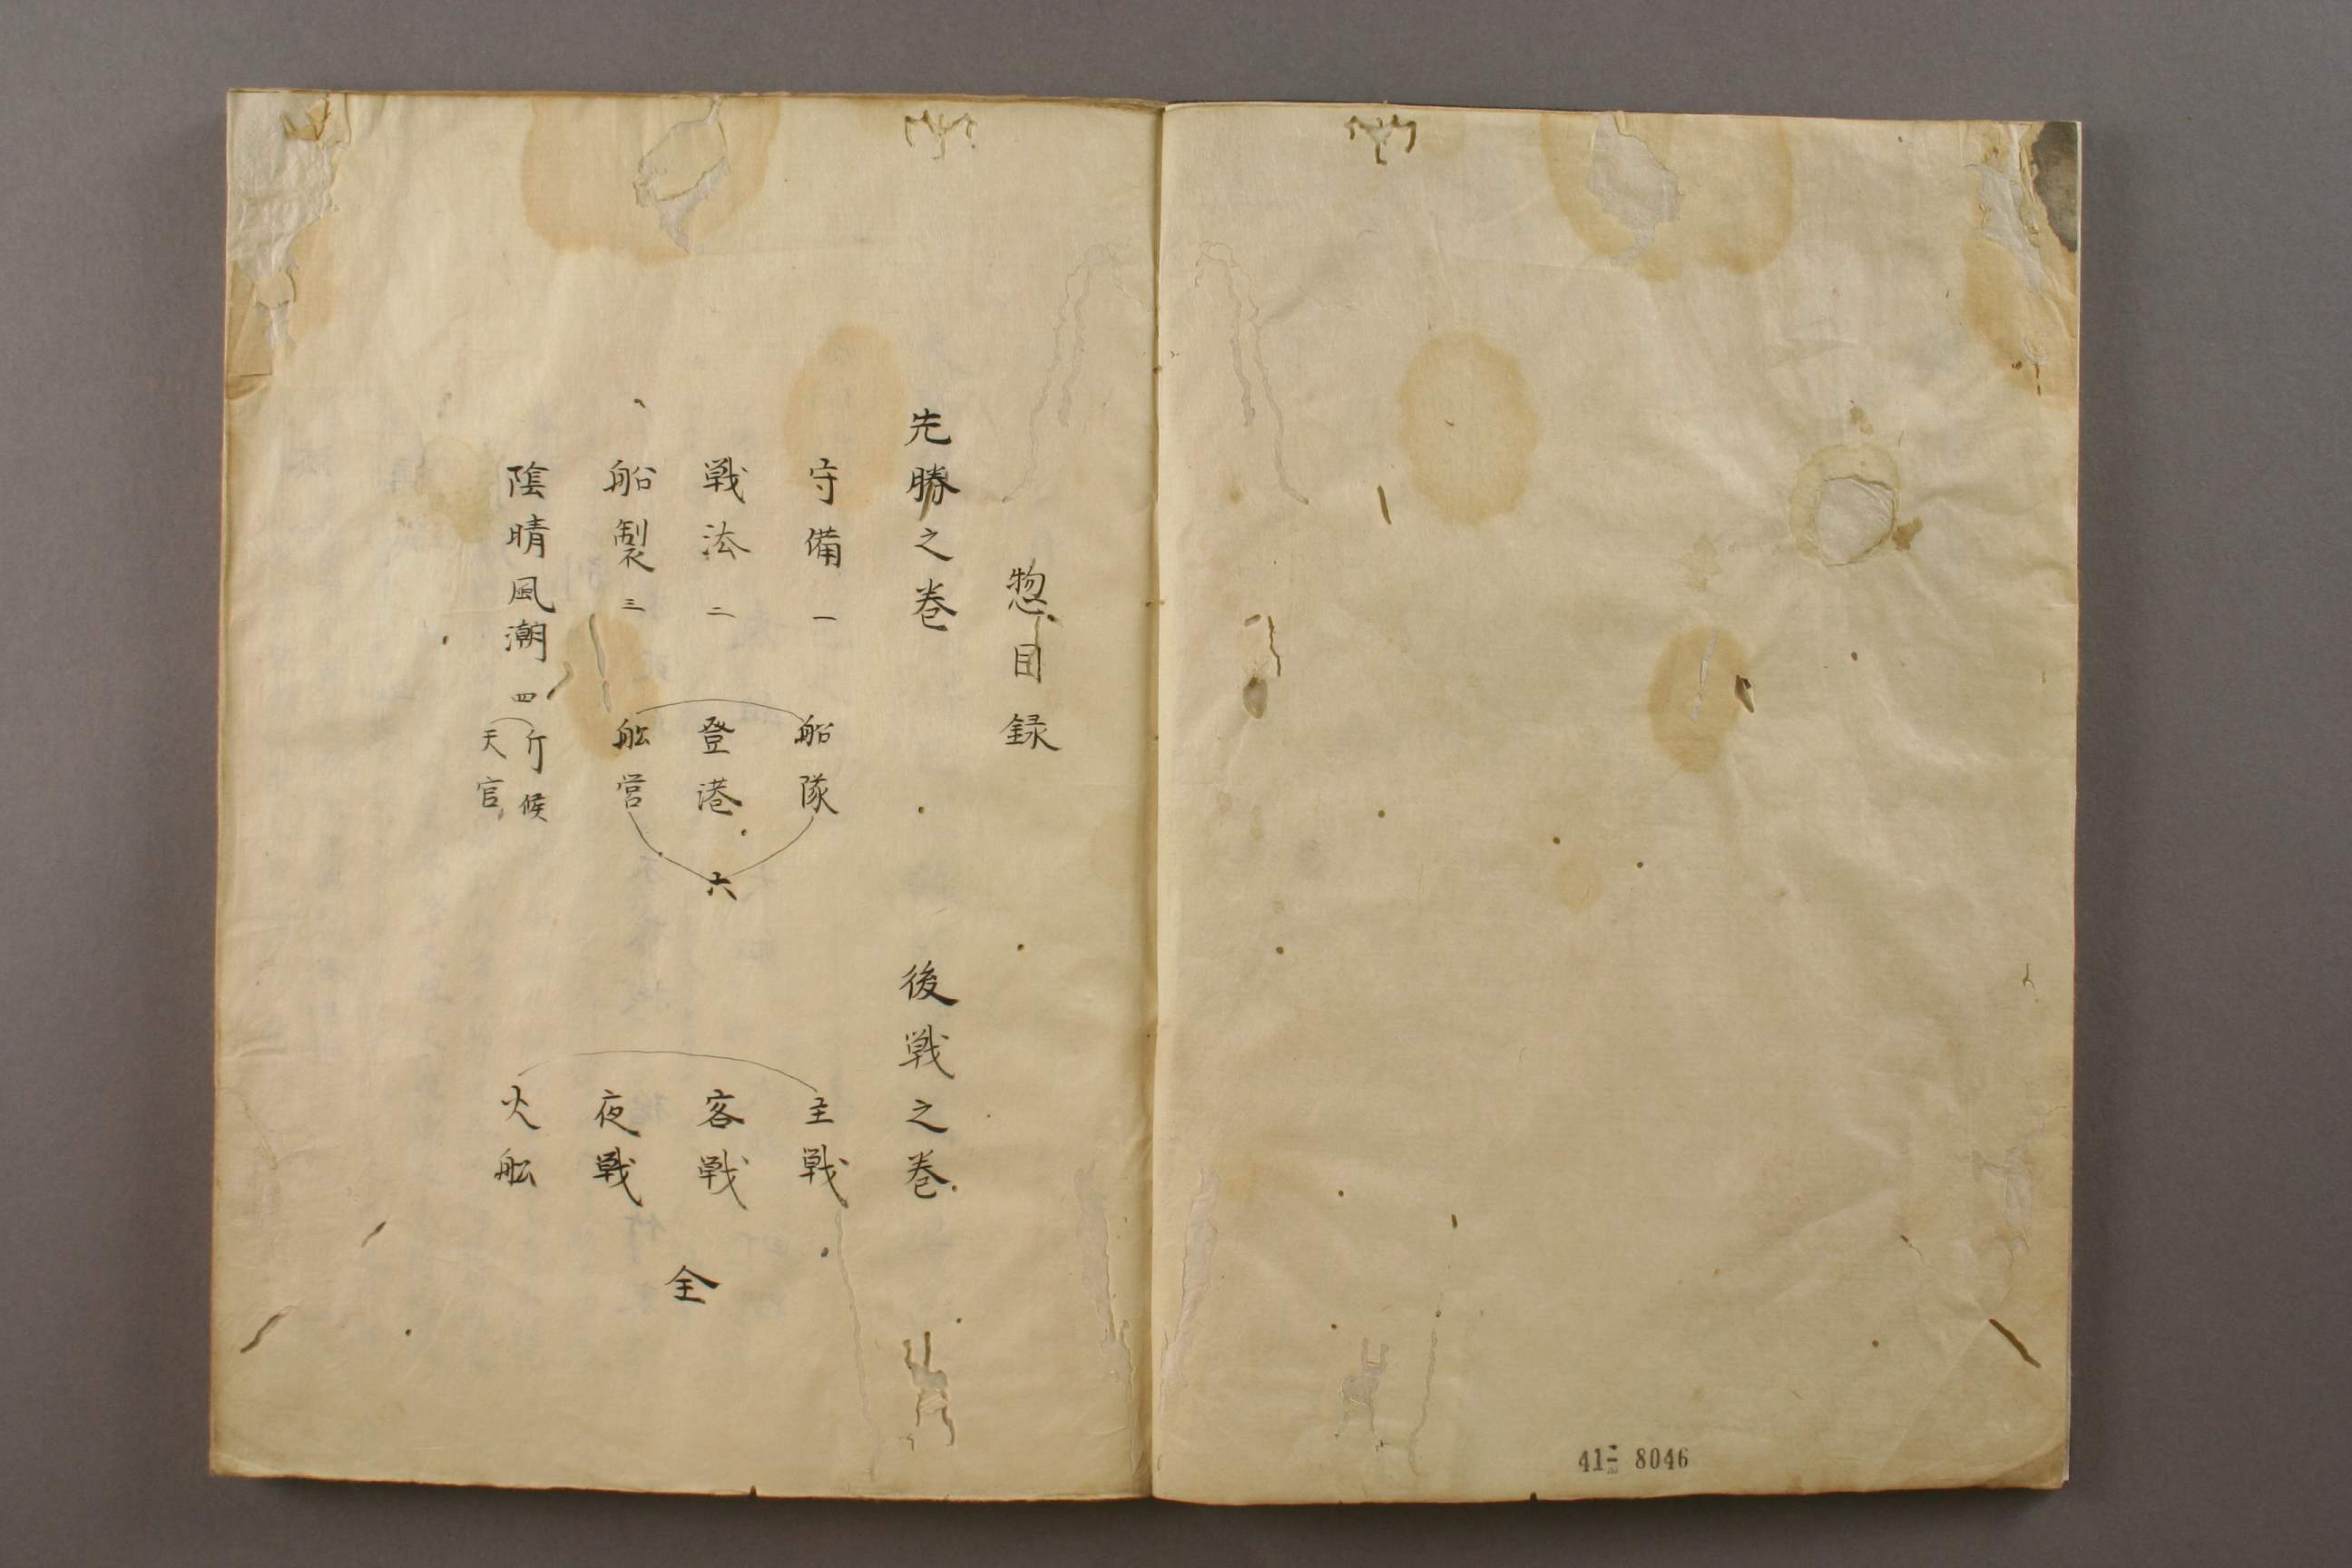 惣目録
先勝之巻
後戦之巻
守備一
船隊
主戦
戦法二
登港
六
客戦
全
船製三
舩営
夜戦
陰晴風潮四
斤候
天官
火舩
41- 8046